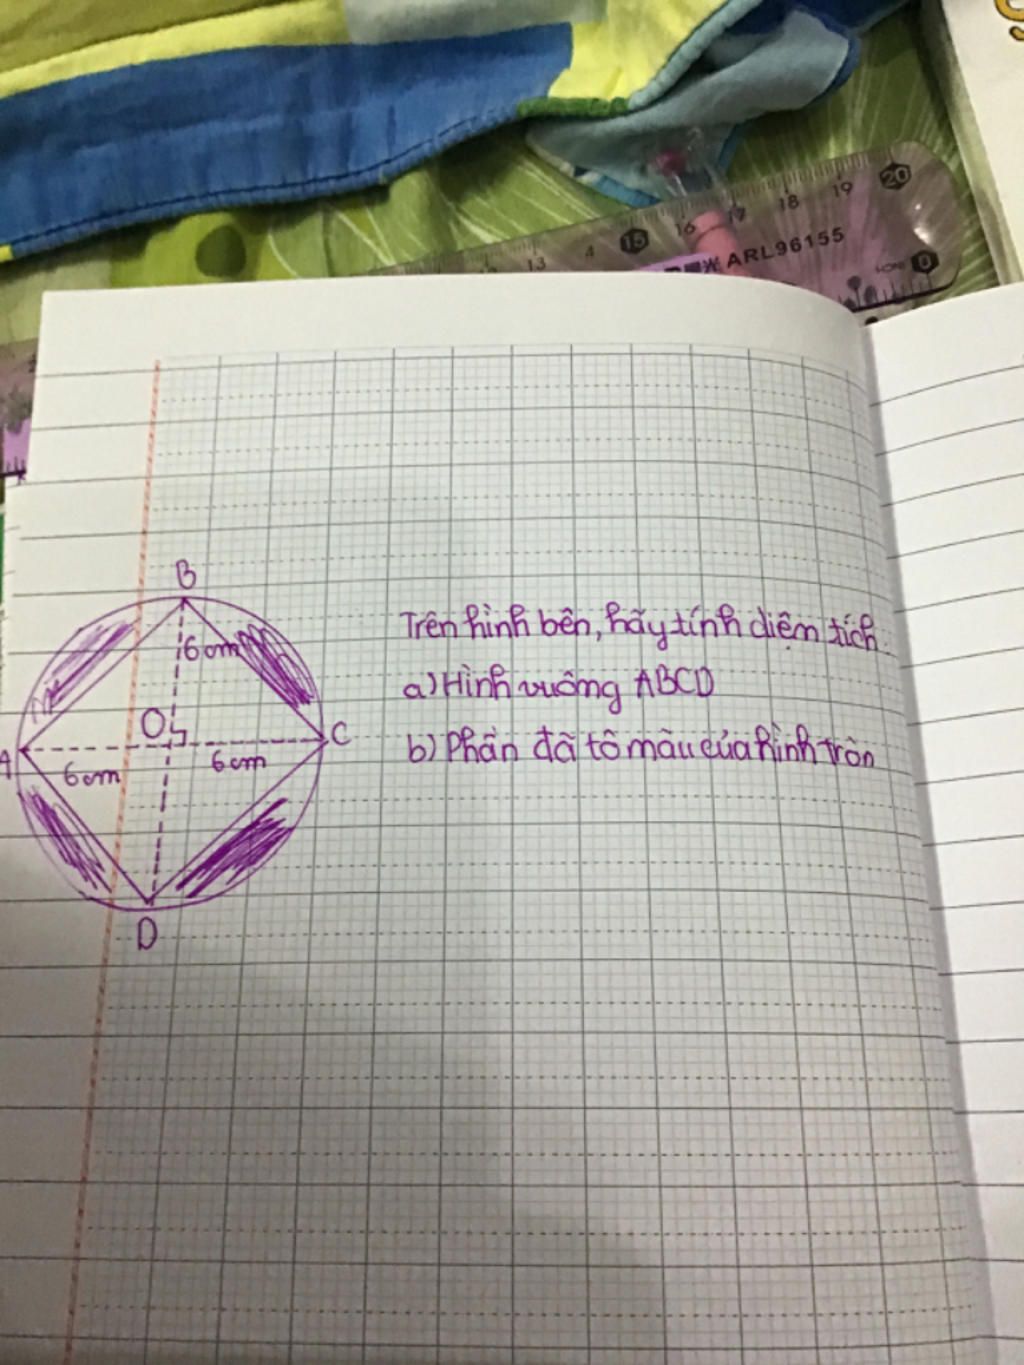 13 4 15 16 17 18 19 20
ARL96155
0
B
6cm
O
A
C
6cm
6cm
D
Trên hình bên, hãy tính diệm tích:
a) Hình vuông ABCD
b) Phần đã tô màu của hình tròn